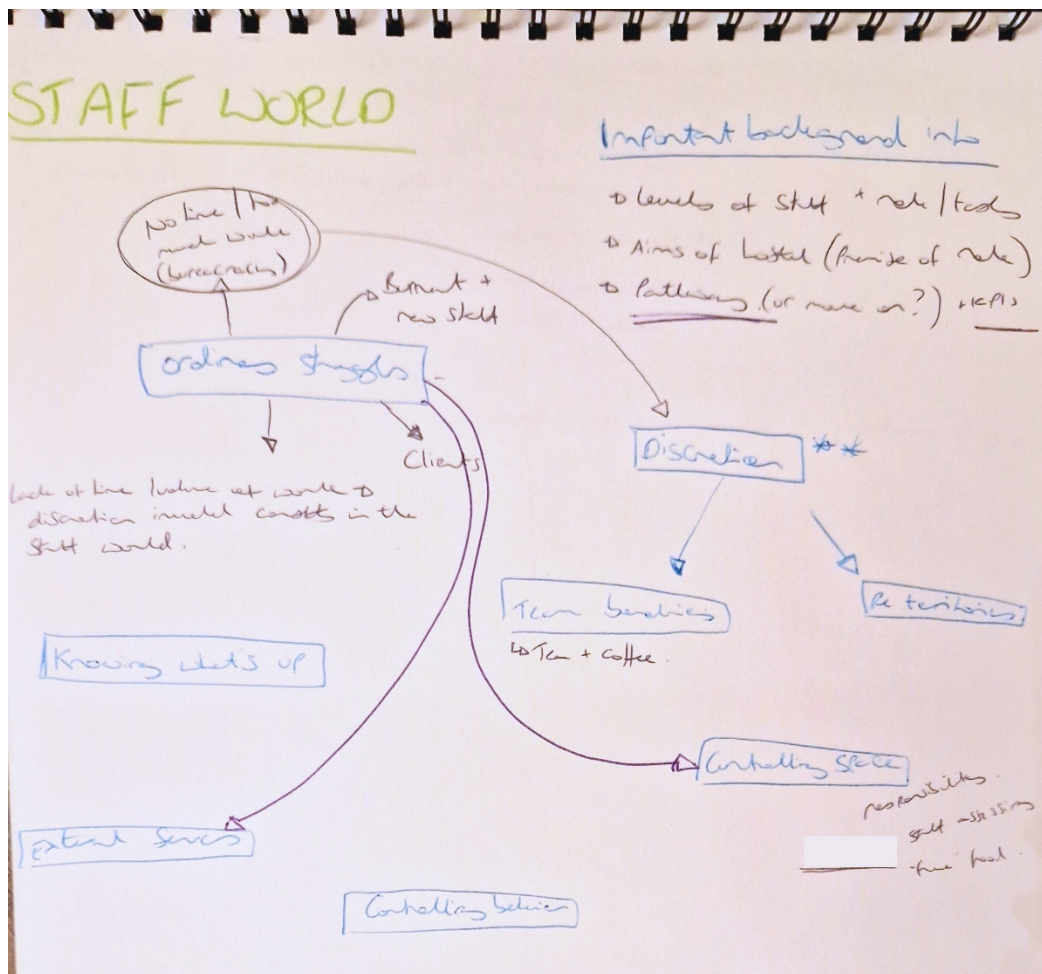 STAFF WORLD
Important background info
→ Levels of Staff + role / tasks
→ Aims of hostel (Premise of role)
→ Pathways (or move on?) + KPIs
No time / too
much work
(bureaucracy)
Burnout +
new staff
Ordinary Struggles
Clients
Lack of time / volume of work →
discretion in the
Staff world.
Discretion **
Team boundaries
↳ Tea + coffee.
Re territories
Knowing what's up
Controlling Space
responsibility.
staff assessing
free food.
External Services
Controlling behaviour